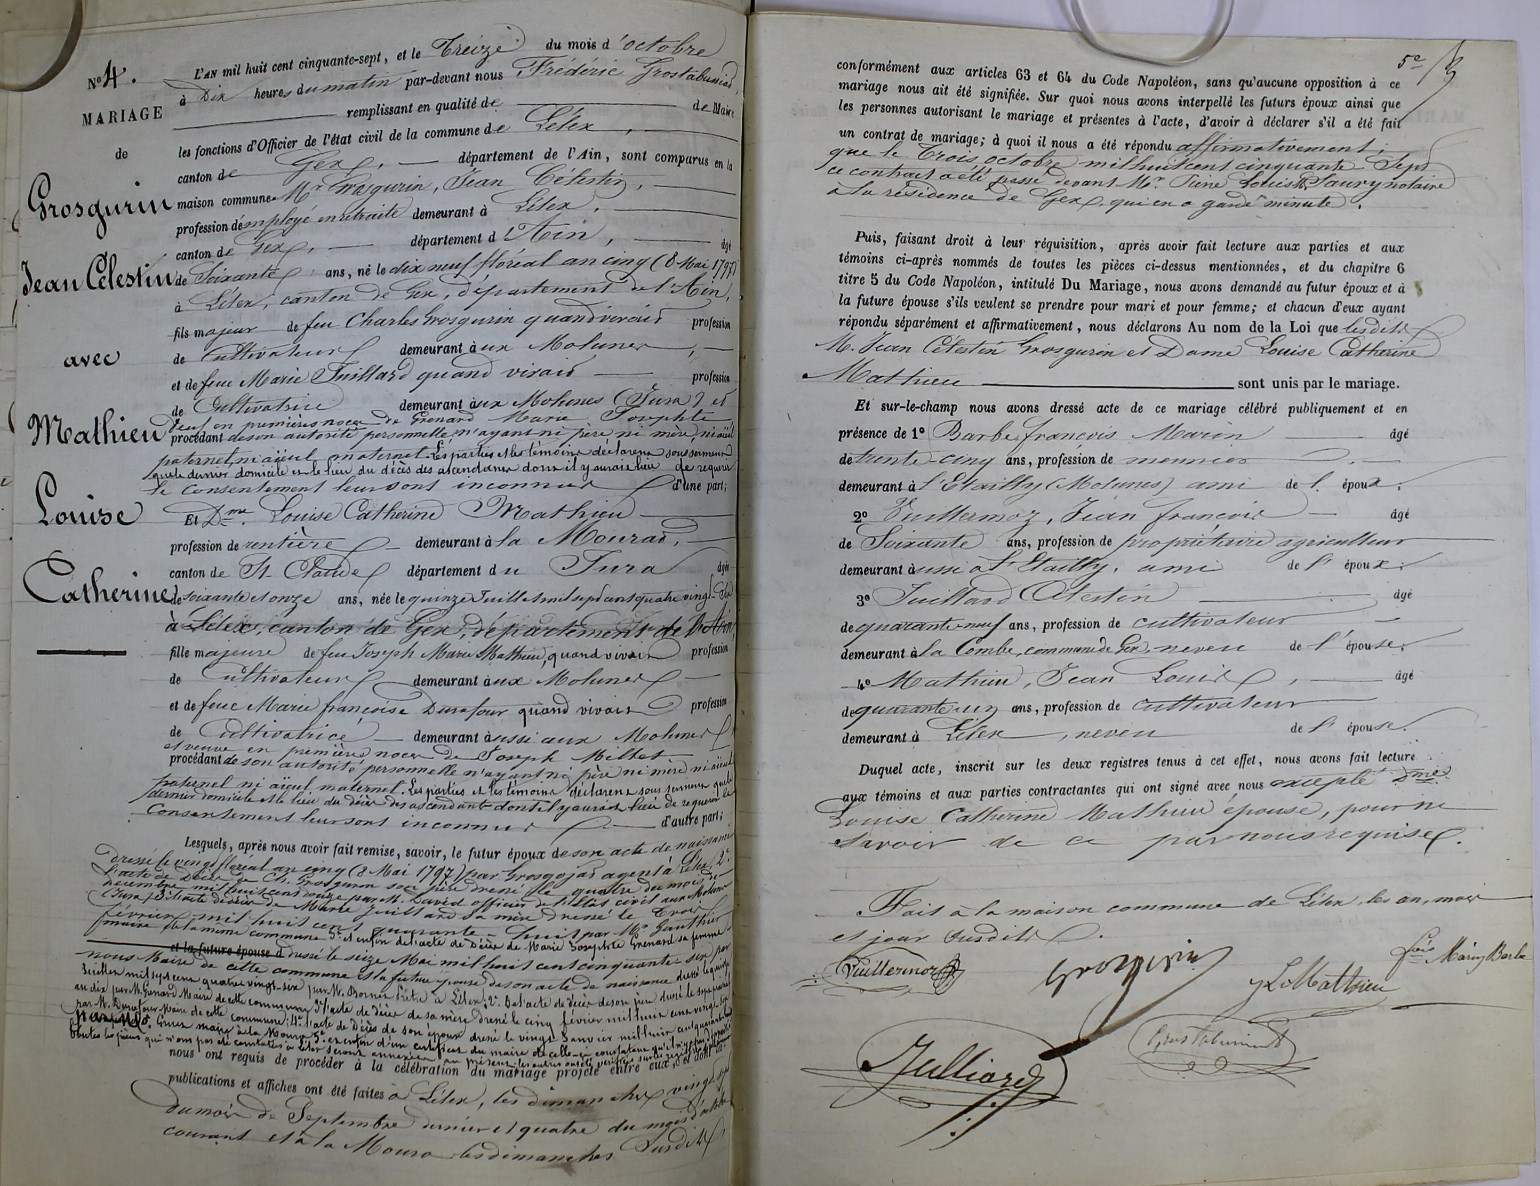 No 4.
MARIAGE
de
Grosgurin
Jean Célestin
avec
Mathieu
Louise
Catherine
L'AN mil huit cent cinquante-sept, et le Treize du mois d'octobre
à Dix heures du matin par-devant nous Frédéric Grostabussiat
remplissant en qualité de de Maire
les fonctions d'Officier de l'état civil de la commune de Lélex,
canton de Gex, département de l'Ain, sont comparus en la
maison commune Mr Grosgurin, Jean Célestin,
profession d'employé en retraite demeurant à Lélex,
canton de Gex, département d l'Ain, âgé
de Soixante ans, né le dix neuf floréal an cinq (8 Mai 1797)
à Lélex, canton de Gex, département de l'Ain,
fils majeur de feu Charles Grosgurin quand vivait profession
de Cultivateur demeurant aux Molunes,
et de feue Marie Juillard quand vivait profession
de Cultivatrice demeurant aux Molunes (Jura) et
veuf en premières noces de Grenard Marie Josephte
procédant de son autorité personnelle n'ayant ni père ni mère, ni aïeul
paternel, ni aïeul maternel. Les parties et les témoins déclarent sous serment
que le dernier domicile et le lieu du décès des ascendants dont il y aurait lieu de requérir
le consentement leur sont inconnus d'une part;
Et Dme Louise Catherine Mathieu
profession de rentière demeurant à la Moura,
canton de St Claude département du Jura âgée
de soixante et onze ans, née le quinze Juillet mil sept cent quatre vingt-six
à Lélex, canton de Gex, département de l'Ain,
fille majeure de feu Joseph Marie Mathieu, quand vivait profession
de Cultivateur demeurant aux Molunes
et de feue Marie françoise Durafour quand vivait profession
de Cultivatrice demeurant aussi aux Molunes
et veuve en premières noces de Joseph Millet
procédant de son autorité personnelle n'ayant ni père ni mère ni aïeul
paternel ni aïeul maternel. Les parties et les témoins déclarent sous serment que le
dernier domicile et le lieu du décès des ascendants dont il y aurait lieu de requérir le
Consentement leur sont inconnus d'autre part;
Lesquels, après nous avoir fait remise, savoir, le futur époux de son acte de naissance
dressé le vingt floréal an cinq (8 Mai 1797) par Grosgojat agent à Lélex, 2°
l'acte de Décès de Ch. Grosgurin son père dressé le quatre du mois de
décembre mil huit cent douze par M. David officier de l'état civil aux Molunes
(Jura) 3° l'acte de décès de Marie Juillard sa mère dressé le trois
février mil huit cent quarante-huit par Mr Gauthier
maire de la même commune 4° et enfin de l'acte de Décès de Marie Josephte Grenard sa femme
et la future épouse d dressé le seize Mai mil huit cent cinquante six par
nous Maire de cette commune et la future épouse de son acte de naissance dressé le quinze
Juillet mil sept cent quatre vingt-six par M. Prêtre à Lélex, 2° de l'acte de décès de son père dressé le
au dix par M. Grenard Maire de cette commune 3° l'acte de décès de sa mère dressé le cinq février mil huit cent vingt
par M. Durafour Maire de cette commune 4° l'acte de Décès de son époux dressé le vingt Janvier mil huit cent quarante
maire de la Moura 5° et enfin d'un certificat du maire de celle-ci constatant qu'il n'y a pas d'opposition
toutes les pièces
nous ont requis de procéder à la célébration du mariage projeté entre eux, et dont les
publications et affiches ont été faites à Lélex, les dimanches vingt sept
du mois de Septembre dernier et quatre du mois d'octobre
courant et à la Moura les dimanches susdits
5e
conformément aux articles 63 et 64 du Code Napoléon, sans qu'aucune opposition à ce
mariage nous ait été signifiée. Sur quoi nous avons interpellé les futurs époux ainsi que
les personnes autorisant le mariage et présentes à l'acte, d'avoir à déclarer s'il a été fait
un contrat de mariage; à quoi il nous a été répondu affirmativement;
que le trois octobre mil huit cent cinquante Sept
ce contrat a été passé devant Mr Pierre Louis Saury notaire
à la résidence de Gex, qui en a gardé minute.
Puis, faisant droit à leur réquisition, après avoir fait lecture aux parties et aux
témoins ci-après nommés de toutes les pièces ci-dessus mentionnées, et du chapitre 6
titre 5 du Code Napoléon, intitulé Du Mariage, nous avons demandé au futur époux et à
la future épouse s'ils veulent se prendre pour mari et pour femme; et chacun d'eux ayant
répondu séparément et affirmativement, nous déclarons Au nom de la Loi que lesdits
M. Jean Célestin Grosgurin et Dame Louise Catherine
Mathieu sont unis par le mariage.
Et sur-le-champ nous avons dressé acte de ce mariage célébré publiquement et en
présence de 1° Barbe françois Marin âgé
de trente-cinq ans, profession de meunier
demeurant à l'Etailly (Molunes) ami de l'époux,
2° Vuillermoz, Jean françois âgé
de Soixante ans, profession de propriétaire agriculteur
demeurant aussi à l'Etailly, ami de l'époux.
3° Juillard Célestin âgé
de quarante-neuf ans, profession de cultivateur
demeurant à la Combe, commune de Gex, neveu de l'épouse,
4° Mathieu, Jean Louis, âgé
de quarante un ans, profession de cultivateur
demeurant à Lélex, neveu de l'épouse.
Duquel acte, inscrit sur les deux registres tenus à cet effet, nous avons fait lecture
aux témoins et aux parties contractantes qui ont signé avec nous excepté Dme
Louise Catherine Mathieu épouse, pour ne
savoir de ce par nous requise.
Fait à la maison commune de Lélex, les an, mois
et jour susdits.
Vuillermoz Grosgurin JLMathieu fois Marin Barbe
Julliard Grostabussiat